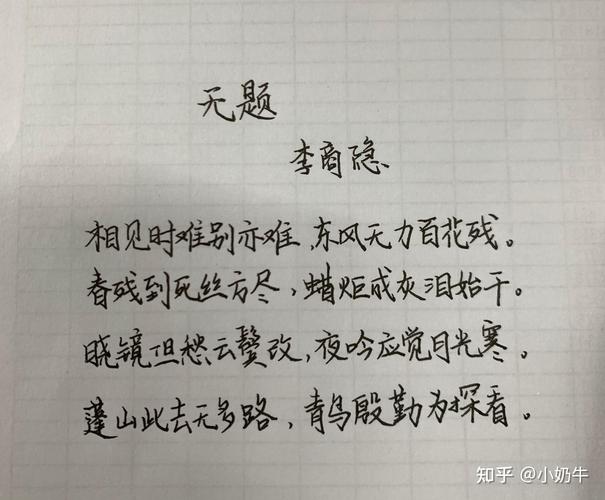 无题
李商隐
相见时难别亦难,东风无力百花残。
春残到死丝方尽,蜡炬成灰泪始干。
晓镜但愁云鬓改,夜吟应觉月光寒。
蓬山此去无多路,青鸟殷勤为探看。
知乎 @小奶牛